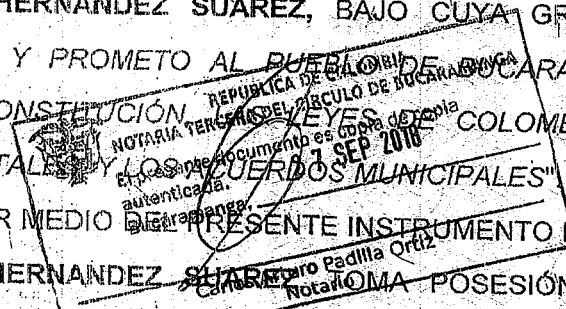 HERNANDEZ SUAREZ, BAJO CUYA GR
Y PROMETO AL PUEBLO DE BUCARA
CONSTITUCIÓN, LEYES DE COLOMB
Y LOS ACUERDOS MUNICIPALES"
R MEDIO DEL PRESENTE INSTRUMENTO
HERNANDEZ SUAREZ TOMA POSESIÓN
REPUBLICA DE COLOMBIA
NOTARIA TERCERA DEL CIRCULO DE BUCARAMANGA
El presente documento es copia de copia
autenticada. 17 SEP 2018
Bucaramanga.
Carlos Arturo Padilla Ortiz
Notario